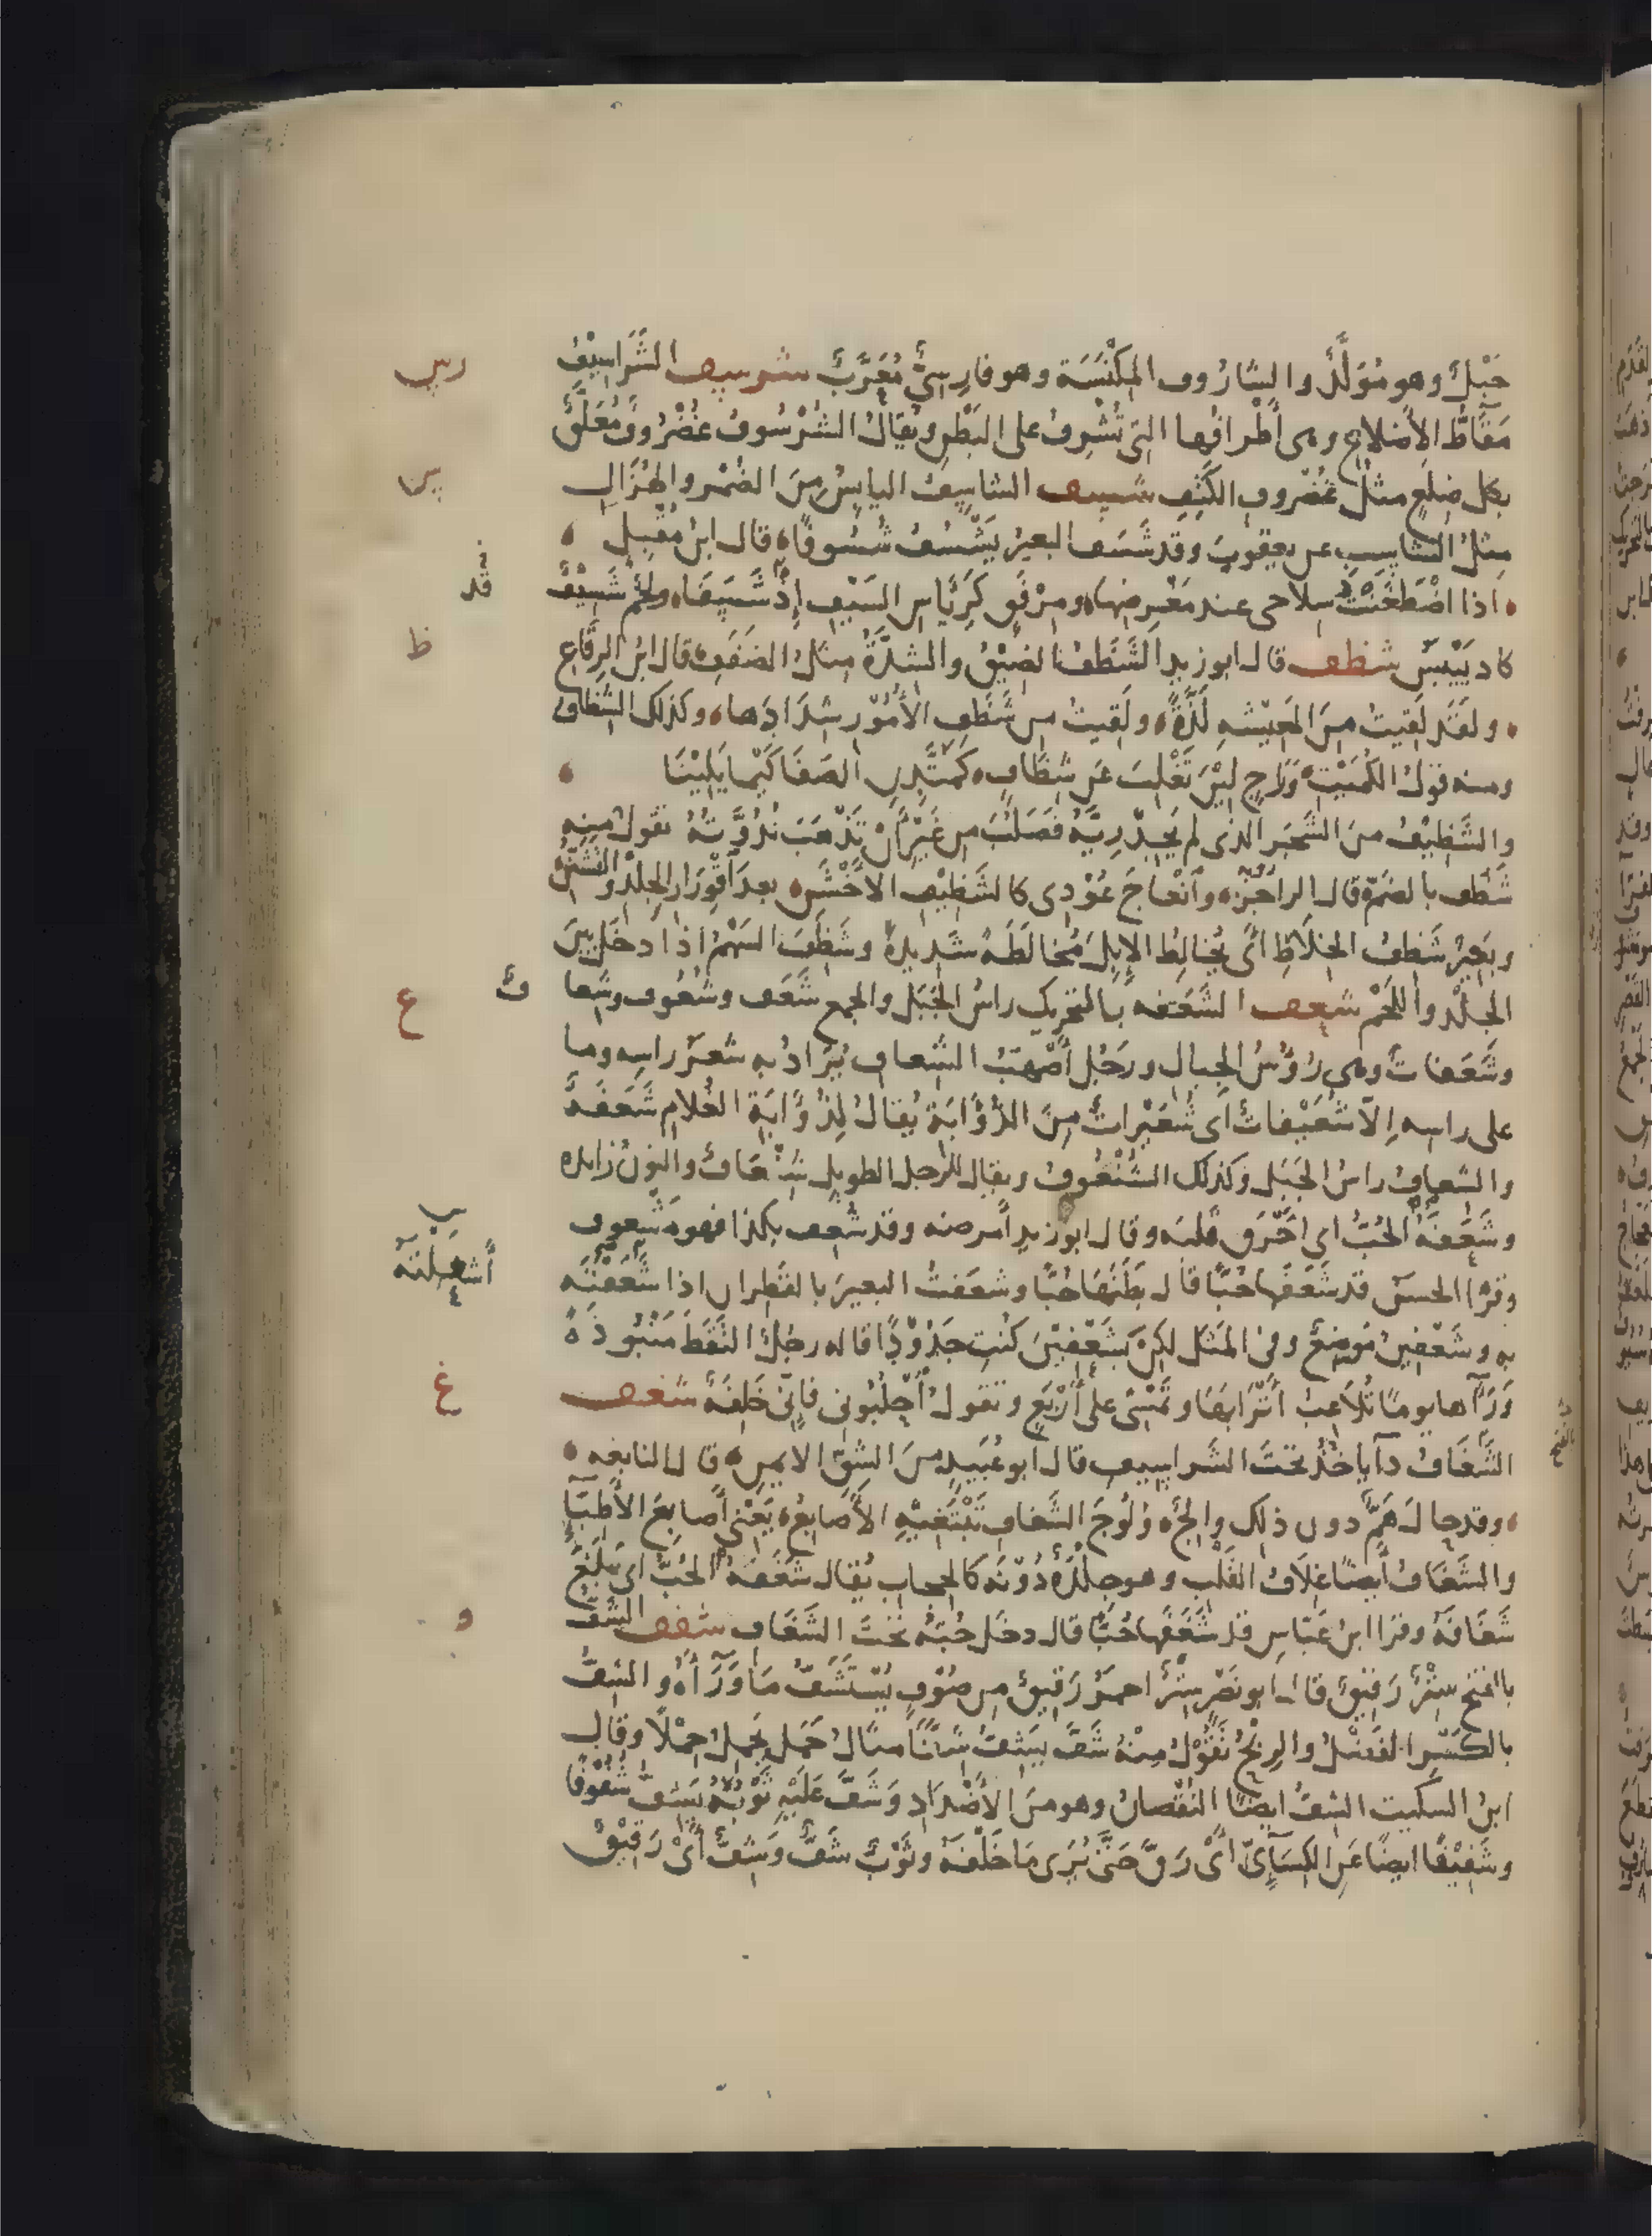 جَبَلٌ وهو مُوَلَّدٌ والشارُوف المِكْنَسَة وهو فارِسِيٌّ مُعَرَّبٌ شرسف الشَّراسِيْفُ
مَقَاطُّ الأضلاع وهى أطرافُها التى تُشْرِفُ على البَطْنِ ويُقالُ الشُّرْسُوفُ غضْرُوفٌ مُعَلَّقٌ
بكل ضِلَعٍ مثلُ غُضْروفِ الكَتِفِ شسف الشاسِفُ اليابِسُ مِنَ الضُمْرِ والهُزَالِ
مثلُ الشاسِبِ عن يعقوبَ وقد شَسَفَ البعيرُ يَشْسُفُ شُسُوفًا قال ابنُ مُقْبِلٍ
اذا اضْطَغَنْتُ سِلاحى عند مَغْرِضِها ومِرْفَقٍ كَرِئَاسِ السَيْفِ إِذْ شَسَفَا ولَحْمٌ شَسِيْفٌ
قد
كاد يَيْبَسُ شظف قال ابو زيد الشَّظَفُ الضِيْقُ والشِدَّةُ مثلُ الضَفَفِ قال ابنُ الرِقَاعِ
ولقَد لَقِيتُ مِنَ المَعِيْشَةِ لَذَّةً ولَقِيتُ من شَظَفِ الأُمُوْرِ شِدَادَها وكذلك الشِظَافُ
ومنه قولُ الكُمَيْتِ وَرَاجٍ لِيْنَ تَغْلِبَ عَن شِظَافٍ كَمُتَّدِنِ الصَفَا كَيْما يَلِيْنَا
والشَّظِيْفُ مِنَ الشَّجَرِ الذى لم يَجِدْ رِيَّهُ فَصَلُبَ من غَيْرِ أَنْ تَذْهَبَ نُدُوَّتُهُ تقولُ مِنه
شَظُف بالضمّ قال الراجزُ وانْعاجَ عُوْدِى كالشَّظِيْفِ الأَخْشَنِ بعد اقْوِرَارِ الجِلْدِ والتَشَنُّنِ
وبَعِيْرٌ شَظِفُ الخِلَاطِ أى يُخالِطُ الإبِلَ مُخالَطَةً شَدِيدةً وشَظَفَ السَهْمُ اذا دخَلَ بينَ
الجِلْدِ واللَّحْمِ شعف الشَعَفَه بالتحريك راسُ الجَبَلِ والجمع شَعَفٌ وشُعُوف وشِعا
فٌ
وشَعَفاتٌ وهى رُؤُسُ الجبال ورَجُلٌ أَصْهَبُ الشِعافِ يُرَادُ به شعرُ راسِه وما
على راسِه إلّا شُعَيْفاتٌ أى شُعَيْراتٌ مِنَ الذُؤَابَةِ يُقالُ لِذُؤَابَةِ الغُلامِ شَعَفَةٌ
والشعافُ راسُ الجَبَلِ وكذلك الشُنْعُوفُ ويقال للرجل الطويل شِنْعَافٌ والنونُ زايده
وشَعَفَهُ الحُبُّ اى احْرَق قلبَه وقال ابو زيد أمرضه وقد شُعِف بكذا فهو مَشْعوف
وقرأ الحسنُ قد شَعَفَها حُبًّا قال بَطَنَهَا حُبًّا وشعفتُ البعيرَ بالقَطِران اذا شَعَفْتُه
أشعلته
به وشَعْفِينُ مَوضِعٌ وفى المَثَلِ لكِنْ بِشَعْفَيْنِ كُنْتِ جَدُوْدًا قاله رجُلٌ التَقَطَ مَنْبُوذَةً
وَرَآها يومًا تُلَاعِبُ أَتْرَابَهَا وتَمْشِى على أَرْبَعٍ وتقولُ أُحْلُبُونى فإنّى خَلِفَةٌ شغف
الشَّغَافُ دآءٌ ياخُذُ تحتَ الشَراسِيفِ قال ابو عُبَيدٍ مِنَ الشِقّ الايمنِ قال النابغه
وقد حالَ هَمٌّ دون ذلِكَ والِجٌ وُلُوجَ الشَّغافِ تَبْتَغِيْهِ الأَصَابِعُ يَعْنى أصابعَ الأَطِبَّاءِ
والشَغَافُ أيضًا غِلَافُ القَلْبِ وهو جِلْدَةٌ دُوْنَهُ كالحِجابِ يُقال شَغَفَهُ الحُبُّ اى بَلَغَ
شَغَافَهُ وقرا ابنُ عَبّاسٍ قد شَغَفَها حُبًّا قال دخَلَ حُبُّهُ تحتَ الشَغَافِ شفف الشَفُّ
بالفتح سِتْرٌ رَقِيْقٌ قال ابو نَصْرٍ سِتْرٌ احمرُ رَقيقٌ من صُوْفٍ يُسْتَشَفُّ مَا وَرَآءَهُ والشِفُّ
بالكَسْرِ الفَضْلُ والرِبْحُ تَقُوْلُ مِنْهُ شَفَّ يَشِفُّ شَفًّا مثالُ حَمَلَ يَحْمِلُ حَمْلًا وقال
ابنُ السكيت الشِفُّ ايضًا النُقْصانُ وهو من الأَضْدَادِ وَشَفَّ عَلَيْهِ ثَوْبُهُ يَشِفُّ شُفُوْفًا
وشَفِيْفًا ايضًا عَنِ الكِسَآئِىّ أَىْ رَقَّ حَتَّى يُرَى مَا خَلْفَهُ وثَوْبٌ شَفٌّ وَشِفٌّ أَىْ رَقِيْقٌ